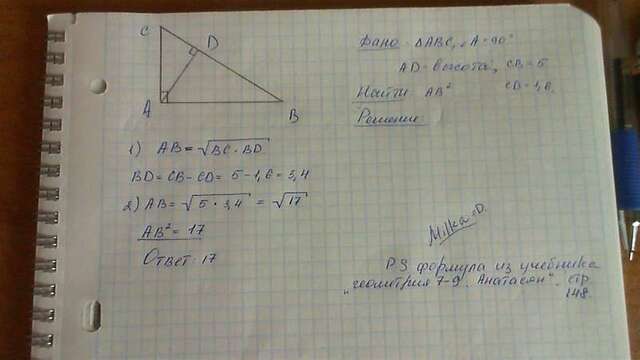 C
D
A
B
Дано: ΔABC, ∠A=90°
AD-высота, CB=5
Найти AB² CD=1,6.
Решение:
1) AB=√BC·BD
BD=CB-CD=5-1,6=3,4
2) AB=√5·3,4=√17
AB²=17
Ответ: 17
Milka:D.
PS формула из учебника
"геометрия 7-9. Анатасян". стр
148.